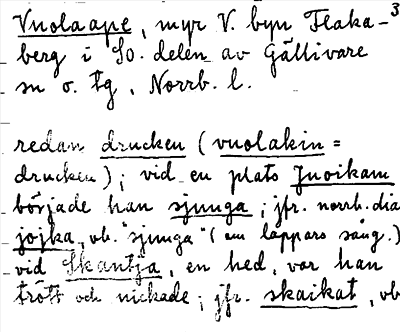 Vuolaape, myr V. byn Flaka- 3
berg i SO. delen av Gällivare
sn o. tg, Norrb. l.
redan drucken (vuolakin =
drucken); vid en plats Juoikam
började han sjunga; jfr. norrb. dial
jojka, vb. "sjunga" (om lappars sång.)
vid Skantja, en hed, var han
trött och nickade; jfr. skaikat, vb